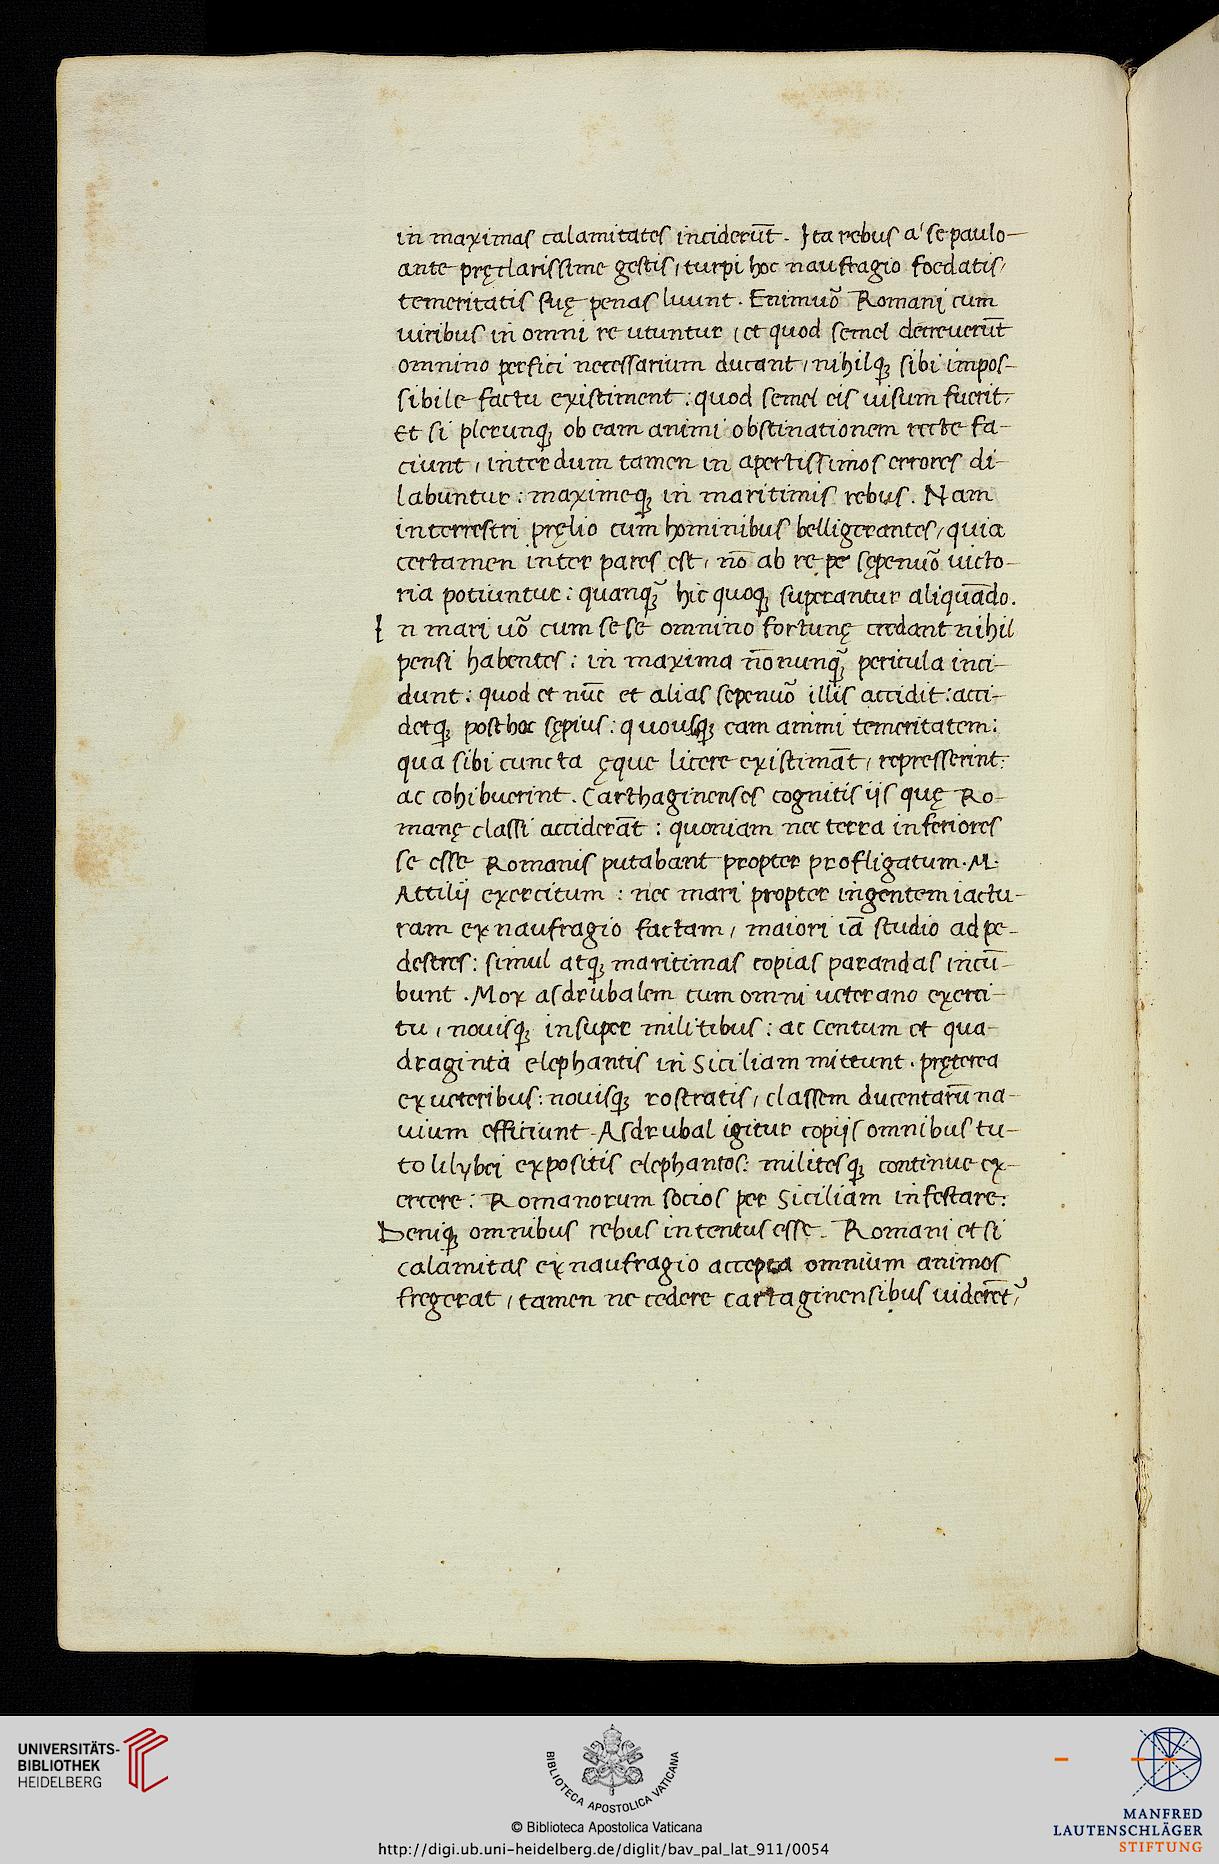 in maximas calamitates inciderūt. Ita rebus a' se paulo-
ante pręclarissime gestis, turpi hoc naufragio foedatis,
temeritatis suę penas luunt. Enimuō Romani cum
uiribus in omni re utuntur, et quod semel decreuerūt
omnino perfici necessarium ducant, nihilq; sibi impos-
sibile factu existiment: quod semel eis uisum fuerit,
Et si plerunq; ob eam animi obstinationem recte fa-
ciunt, interdum tamen in apertissimos errores di-
labuntur: maximeq; in maritimis rebus. Nam
in terrestri pręlio cum hominibus belligerantes, quia
certamen inter pares est, nō ab re pe sępenuō uicto-
ria potiuntur: quanq̃; hic quoq; superantur aliquādo.
In mari uō cum se se omnino fortunę credant nihil
pensi habentes: in maxima nōnunq̃; pericula inci-
dunt: quod et nūc et alias sepenuō illis accidit: acci-
detq; post hac sępius: quousq; eam animi temeritatem:
qua sibi cuncta ęque licere existimāt, represserint:
ac cohibuerint. Carthaginenses cognitis iis quę Ro-
manę classi acciderāt: quoniam nec terra inferiores
se esse Romanis putabant propter profligatum. M.
Attilij exercitum: nec mari propter ingentem iactu-
ram ex naufragio factam, maiori iā studio ad pe-
destres: simul atq; maritimas copias parandas incū-
bunt. Mox asdrubalem cum omni ueterano exerci-
tu, nouisq; insuper militibus: ac centum et qua-
draginta elephantis in Siciliam mittunt. pręterea
ex ueteribus: nouisq; rostratis, classem ducentarū na-
uium efficiunt. Asdrubal igitur copijs omnibus tu-
to lilybei expositis elephantos: militesq; continue ex-
ercere: Romanorum socios per Siciliam infestare:
Deniq; omnibus rebus intentus esse. Romani et si
calamitas ex naufragio accepta omnium animos
fregerat, tamen ne cedere cartaginensibus uiderēt᷒,
UNIVERSITÄTS-
BIBLIOTHEK
HEIDELBERG
BIBLIOTECA APOSTOLICA VATICANA
© Biblioteca Apostolica Vaticana
http://digi.ub.uni-heidelberg.de/diglit/bav_pal_lat_911/0054
MANFRED
LAUTENSCHLÄGER
STIFTUNG